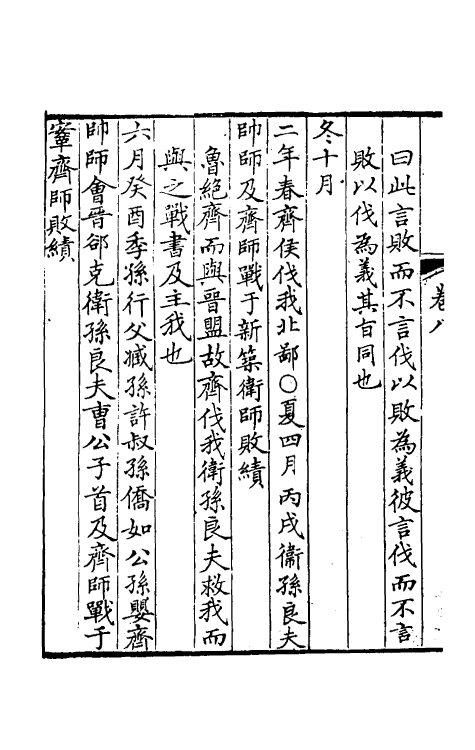 卷八
曰此言敗而不言伐以敗為義彼言伐而不言
敗以伐為義其旨同也
冬十月
二年春齊侯伐我北鄙○夏四月丙戌衞孫良夫
帥師及齊師戰于新築衛師敗績
魯絶齊而與晉盟故齊伐我衛孫良夫救我而
與之戰書及主我也
六月癸酉季孫行父臧孫許叔孫僑如公孫嬰齊
帥師會晉郤克衛孫良夫曹公子首及齊師戰于
鞌齊師敗績